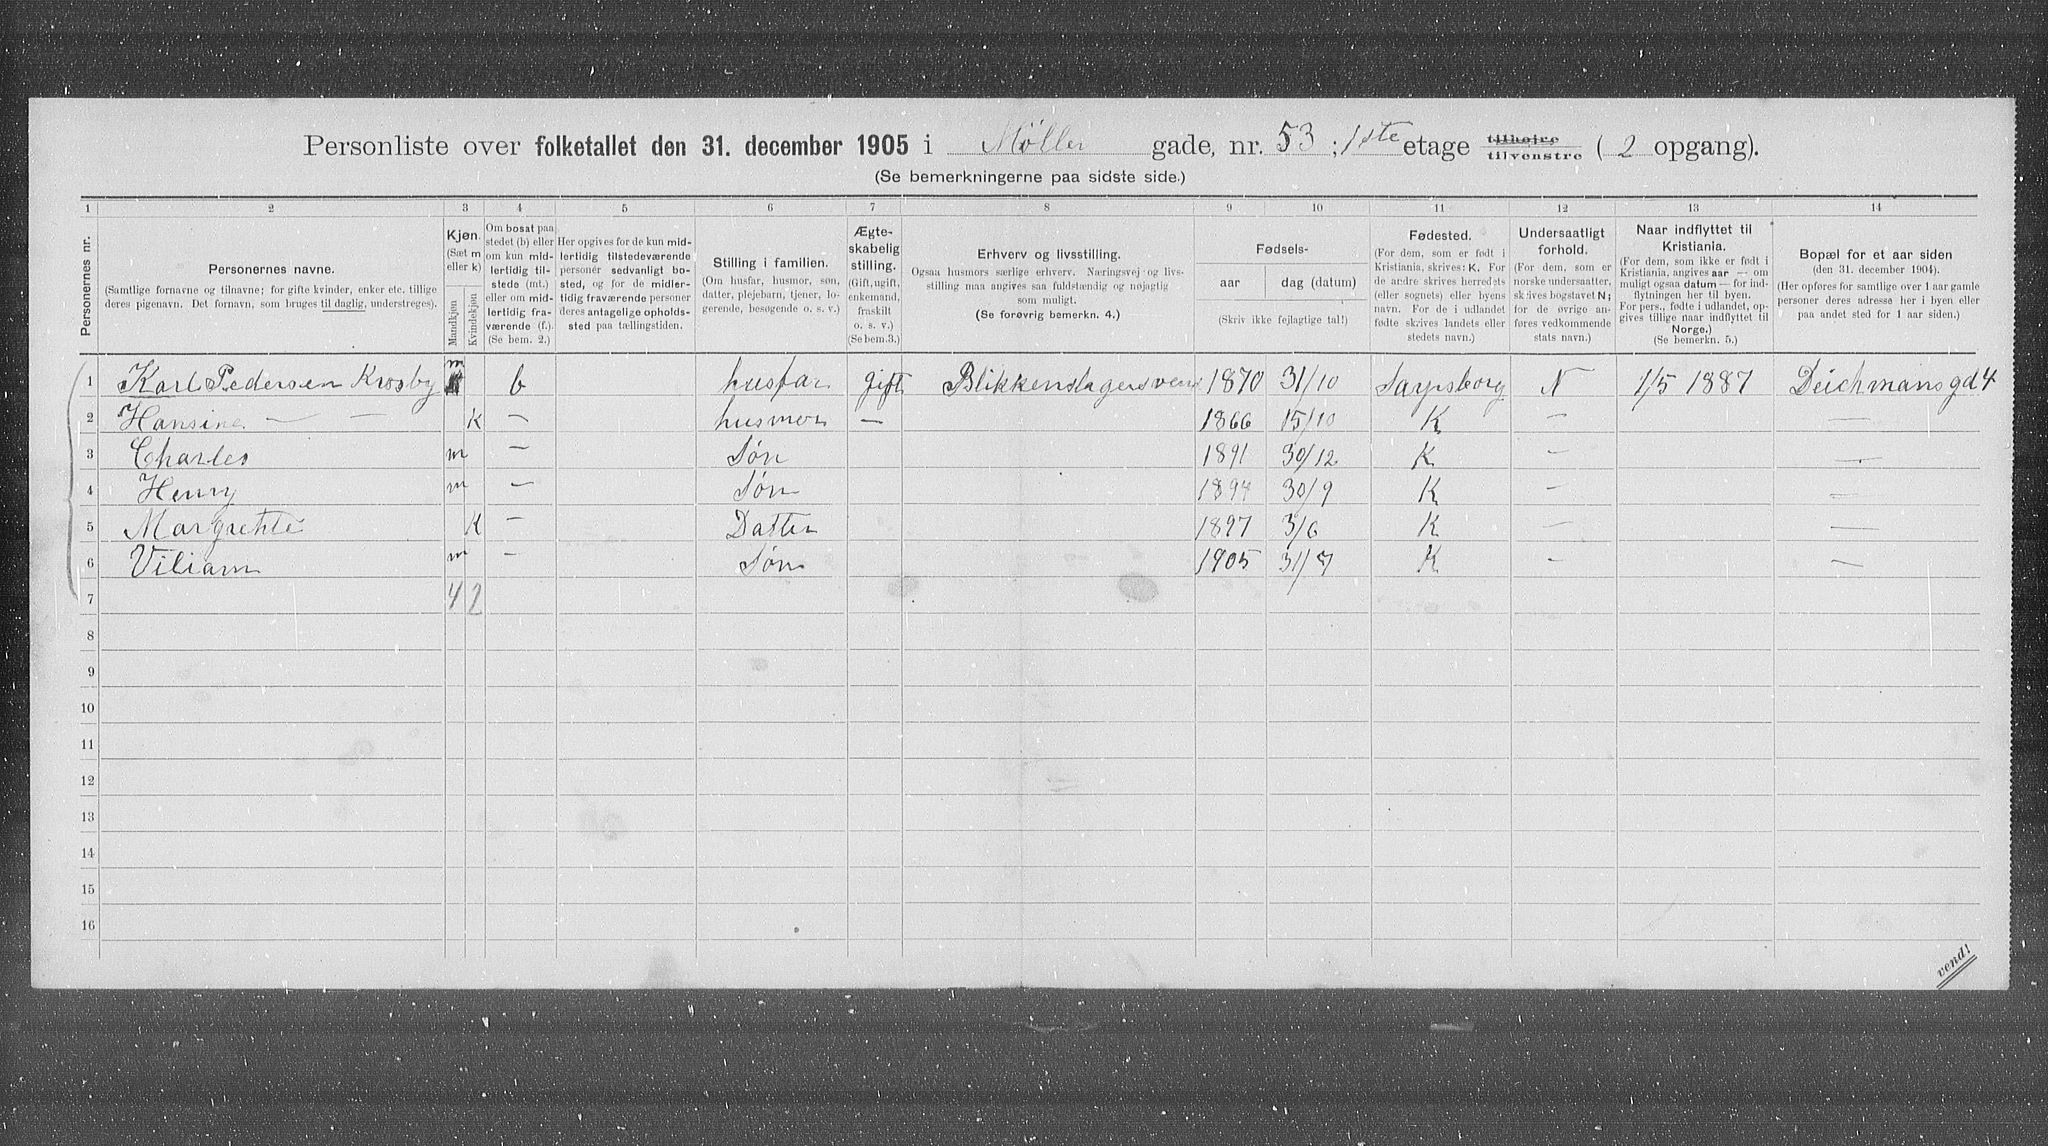 Personliste over folketallet den 31. december 1905 i Møller gade, nr. 53 ; 1ste etage tilhøjre tilvenstre ( 2 opgang).
(Se bemerkningerne paa sidste side.)
1 2 3 4 5 6 7 8 9 10 11 12 13 14
Personernes nr.
Personernes navne.
(Samtlige fornavne og tilnavne; for gifte kvinder, enker etc. tillige
deres pigenavn. Det fornavn, som bruges til daglig, understreges).
Kjøn.
(Sæt m
eller k)
Mandkjøn
Kvindekjøn
Om bosat paa
stedet (b) eller
om kun mid-
lertidig til-
stede (mt.)
eller om mid-
lertidig fra-
værende (f.).
(Se bem. 2.)
Her opgives for de kun mid-
lertidig tilstedeværende
personer sedvanligt bo-
sted, og for de midler-
tidig fraværende personer
deres antagelige opholds-
sted paa tællingstiden.
Stilling i familien.
(Om husfar, husmor, søn,
datter, plejebarn, tjener, lo-
gerende, besøgende o. s. v.)
Ægte-
skabelig
stilling.
(Gift, ugift,
enkemand,
fraskilt
o. s. v.)
(Se bem.3.)
Erhverv og livsstilling.
Ogsaa husmors særlige erhverv. Næringsvej og livs-
stilling maa angives saa fuldstændig og nøjagtig
som muligt.
(Se forøvrig bemerkn. 4.)
Fødsels-
aar
dag (datum)
(Skriv ikke fejlagtige tal!)
Fødested.
(For dem, som er født i
Kristiania, skrives: K. For
de andre skrives herredets
(eller sognets) eller byens
navn. For de i udlandet
fødte skrives landets eller
stedets navn.)
Undersaatligt
forhold.
(For dem, som er
norske undersaatter,
skrives bogstavet N;
for de øvrige an-
føres vedkommende
stats navn.)
Naar indflyttet til
Kristiania.
(For dem, som ikke er født i
Kristiania, angives aar — om
muligt ogsaa datum — for ind-
flytningen her til byen.
For pers. fødte i udlandet, op-
gives tillige naar indflyttet til
Norge.)
(Se bemerkn. 5.)
Bopæl for et aar siden
(den 31. december 1904).
(Her opføres for samtlige over 1 aar gamle
personer deres adresse her i byen eller
paa andet sted for 1 aar siden.)
1 Karl Pedersen Krosby m b husfar gift Blikkenslagersvend 1870 31/10 Sarpsborg N 1/5 1887 Deichmansgd 4
2 Hansine — — K — husmor — 1866 15/10 K — —
3 Charles m — Søn 1891 30/12 K — —
4 Henry m — Søn 1894 30/9 K — —
5 Margrethe K — Datter 1897 3/6 K — —
6 Viliam m — Søn 1905 31/7 K — —
7 4 2
8
9
10
11
12
13
14
15
16
vend!